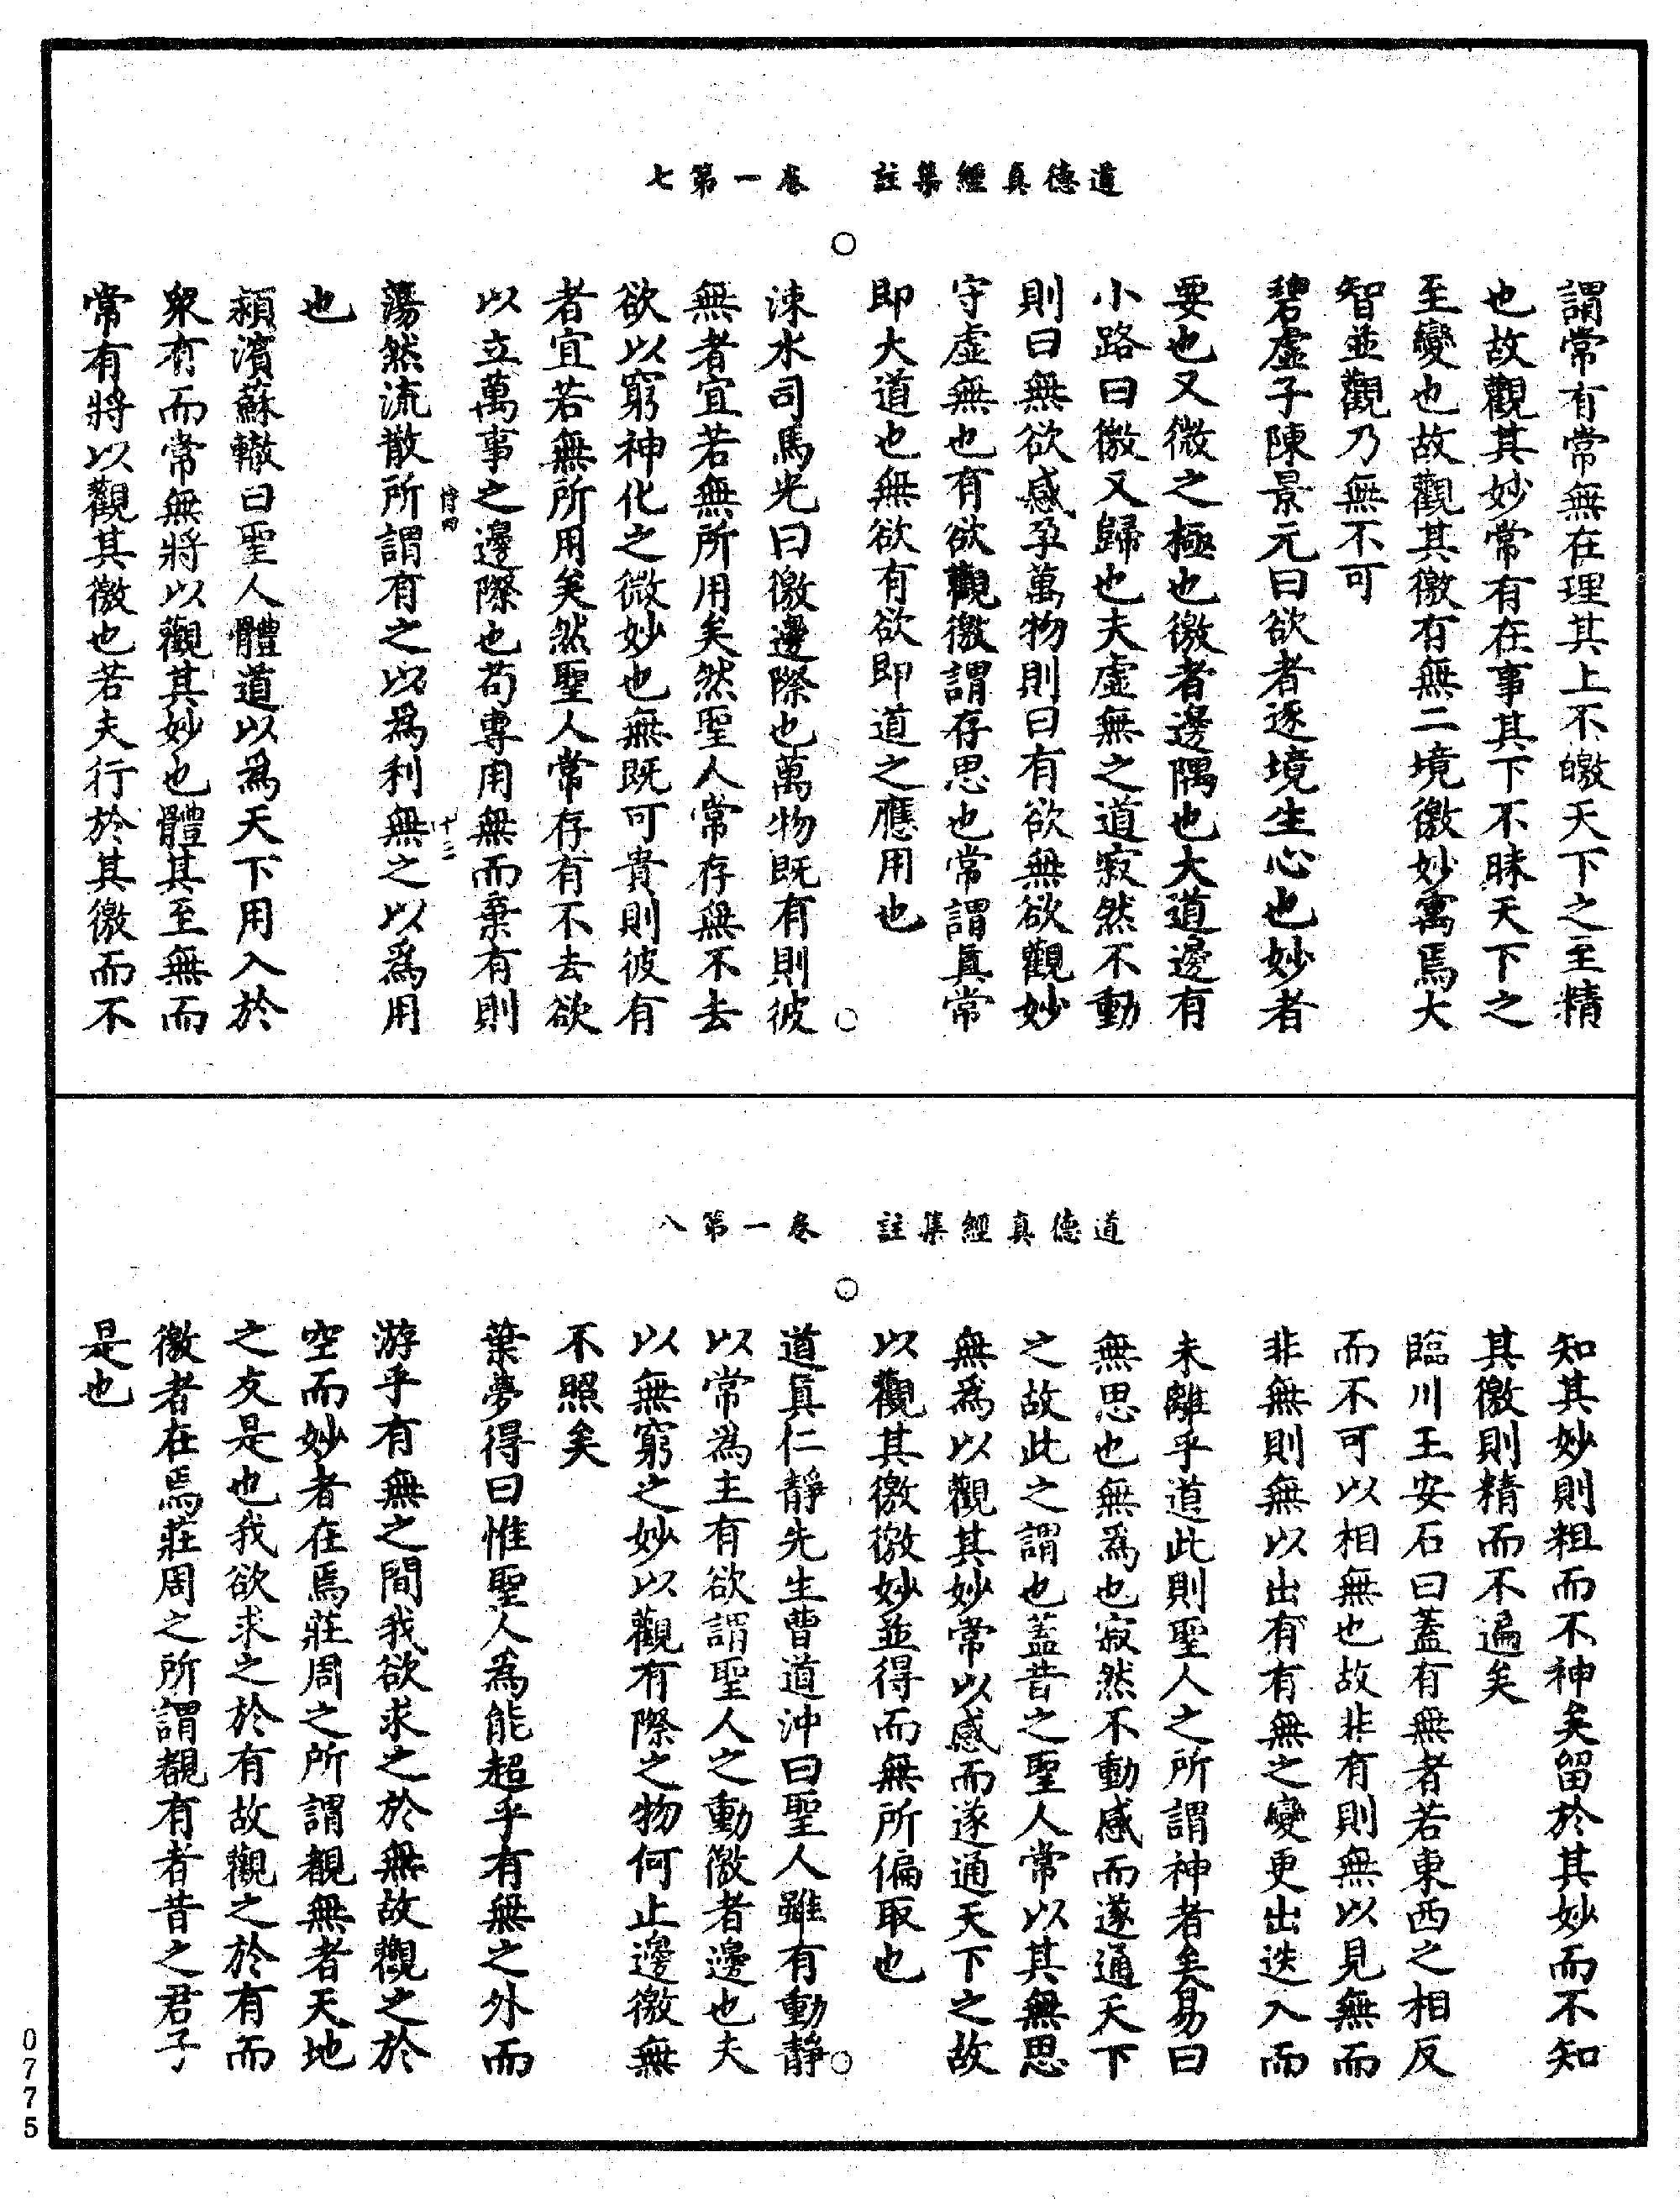 道德真經集註 卷一第七
謂常有常無在理其上不皦天下之至精
也故觀其妙常有在事其下不昧天下之
至變也故觀其徼有無二境徼妙寓焉大
智並觀乃無不可
碧虛子陳景元曰欲者逐境生心也妙者
要也又微之極也徼者邊隅也大道邊有
小路曰徼又歸也夫虛無之道寂然不動
則曰無欲感孕萬物則曰有欲無欲觀妙
守虛無也有欲觀徼謂存思也常謂真常
即大道也無欲有欲即道之應用也
涑水司馬光曰徼邊際也萬物既有則彼
無者宜若無所用矣然聖人常存無不去
欲以窮神化之微妙也無既可貴則彼有
者宜若無所用矣然聖人常存有不去欲
以立萬事之邊際也苟專用無而棄有則
蕩然流散所謂有之以為利無之以為用
也
潁濱蘇轍曰聖人體道以為天下用入於
眾有而常無將以觀其妙也體其至無而
常有將以觀其徼也若夫行於其徼而不
道德真經集註 卷一第八
知其妙則粗而不神矣留於其妙而不知
其徼則精而不遍矣
臨川王安石曰蓋有無者若東西之相反
而不可以相無也故非有則無以見無而
非無則無以出有有無之變更出迭入而
未離乎道此則聖人之所謂神者矣易曰
無思也無為也寂然不動感而遂通天下
之故此之謂也蓋昔之聖人常以其無思
無為以觀其妙常以感而遂通天下之故
以觀其徼徼妙並得而無所偏取也
道真仁靜先生曹道沖曰聖人雖有動靜
以常為主有欲謂聖人之動徼者邊也夫
以無窮之妙以觀有際之物何止邊徼無
不照矣
葉夢得曰惟聖人為能超乎有無之外而
游乎有無之間我欲求之於無故觀之於
空而妙者在焉莊周之所謂覩無者天地
之友是也我欲求之於有故觀之於有而
徼者在焉莊周之所謂覩有者昔之君子
是也
0775